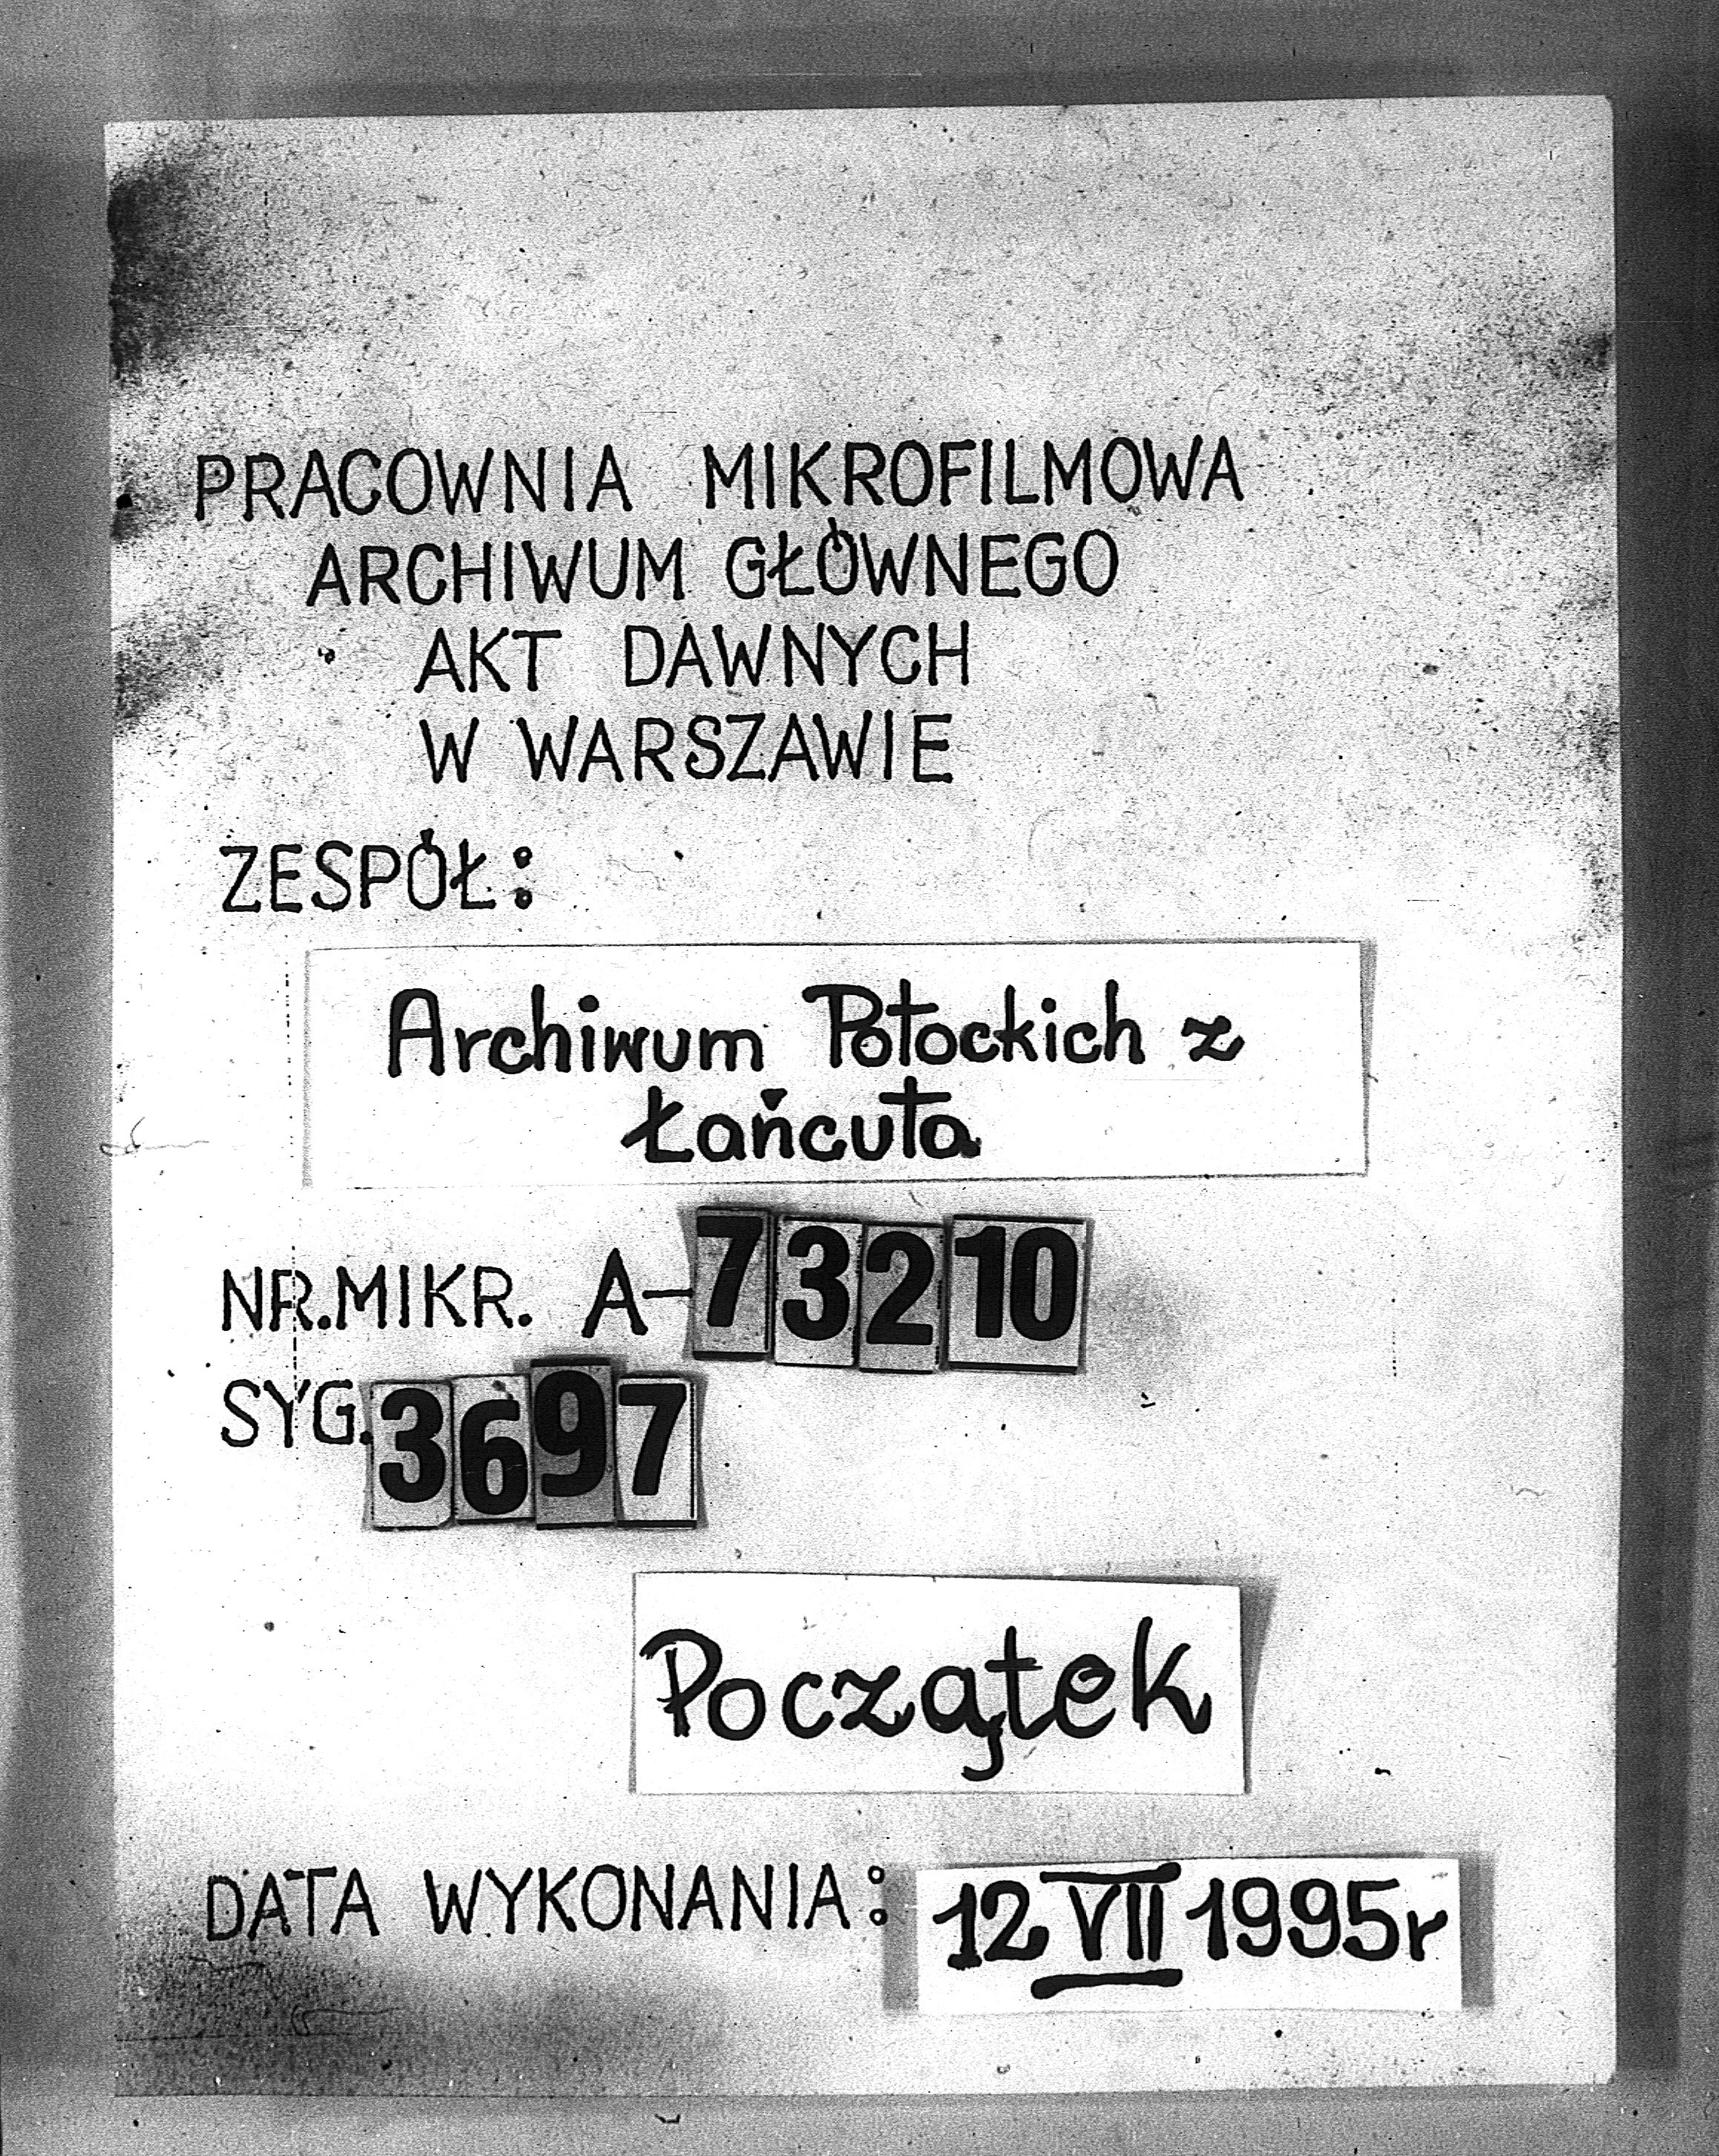 PRACOWNIA MIKROFILMOWA
ARCHIWUM GŁÓWNEGO
AKT DAWNYCH
W WARSZAWIE
ZESPÓŁ:
Archiwum Potockich z
Łańcuta
NR.MIKR. A-73210
SYG.3697
Początek
DATA WYKONANIA: 12 VII 1995r